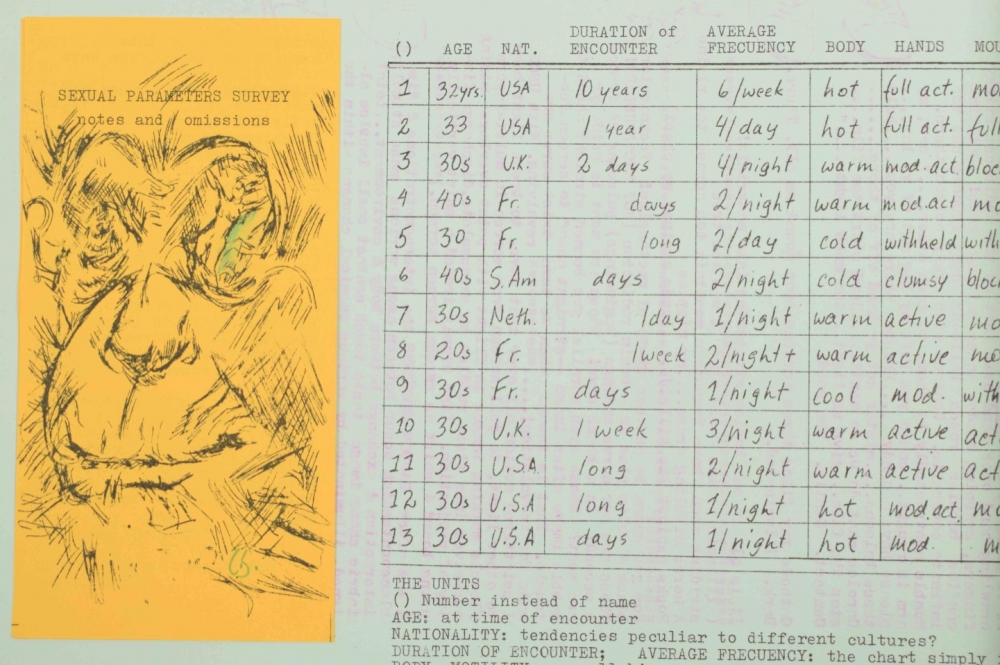 SEXUAL PARAMETERS SURVEY
notes and omissions
() AGE NAT. DURATION of ENCOUNTER AVERAGE FRECUENCY BODY HANDS MOU
1 32yrs. USA 10 years 6/week hot full act. mo
2 33 USA 1 year 4/day hot full act. full
3 30s U.K. 2 days 4/night warm mod.act. bloc
4 40s Fr. days 2/night warm mod.act mo
5 30 Fr. long 2/day cold withheld with
6 40s S.Am days 2/night cold clumsy bloc
7 30s Neth. 1day 1/night warm active mo
8 20s Fr. 1week 2/night+ warm active mo
9 30s Fr. days 1/night cool mod. with
10 30s U.K. 1 week 3/night warm active act
11 30s U.S.A long 2/night warm active act
12 30s U.S.A long 1/night hot mod.act. mo
13 30s U.S.A days 1/night hot mod. m
THE UNITS
() Number instead of name
AGE: at time of encounter
NATIONALITY: tendencies peculiar to different cultures?
DURATION OF ENCOUNTER; AVERAGE FRECUENCY: the chart simply